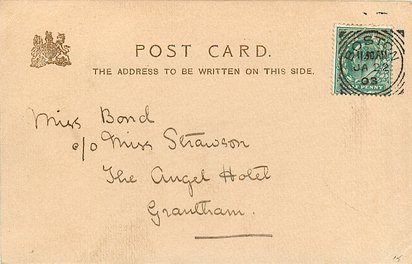 POST CARD.
THE ADDRESS TO BE WRITTEN ON THIS SIDE.
BOSTON
11.40AM
JA 22
03
PENNY
Miss Bond
c/o Miss Strawson
The Angel Hotel
Grantham.